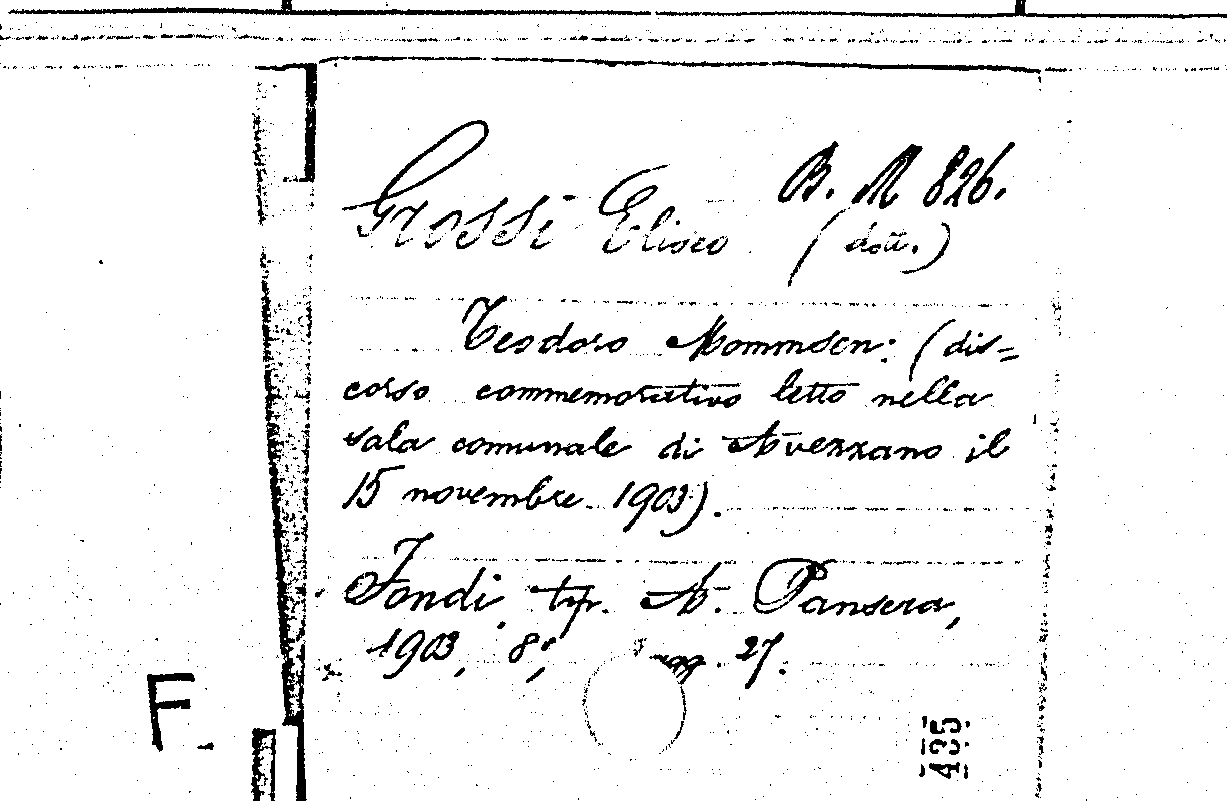 B. M 826.
Grossi Eliseo (dott.)
Teodoro Mommsen: (dis=
corso commemorativo letto nella
sala comunale di Avezzano il
15 novembre 1903).
Fondi, tip. A. Pansera,
1903, 8°, pagg. 27.
F.
435